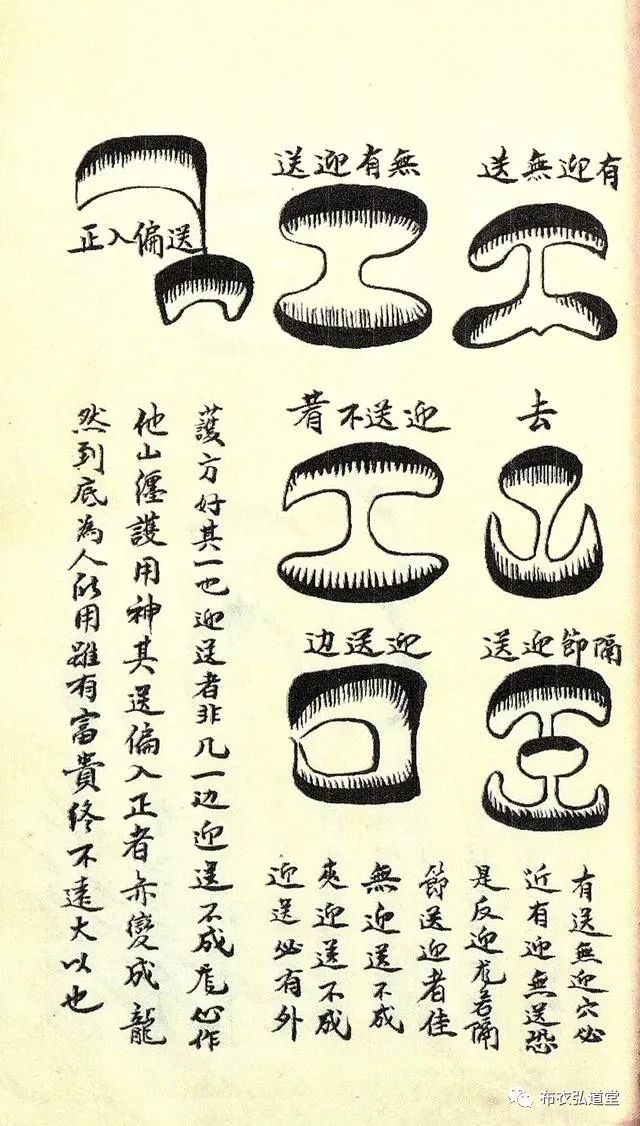 有迎無送
無有迎送
送偏入正
去
迎送不着
隔節迎送
迎送边
有送無迎穴必
近有迎無送恐
是反迎龙若隔
節送迎者佳
無迎送不成
夾迎送不成
迎送必有外
護方好其一也迎送者非凡一边迎送不成龙必作
他山纏護用神其送偏入正者亦變成龍
然到底為人所用雖有富貴終不遠大以也
布衣弘道堂